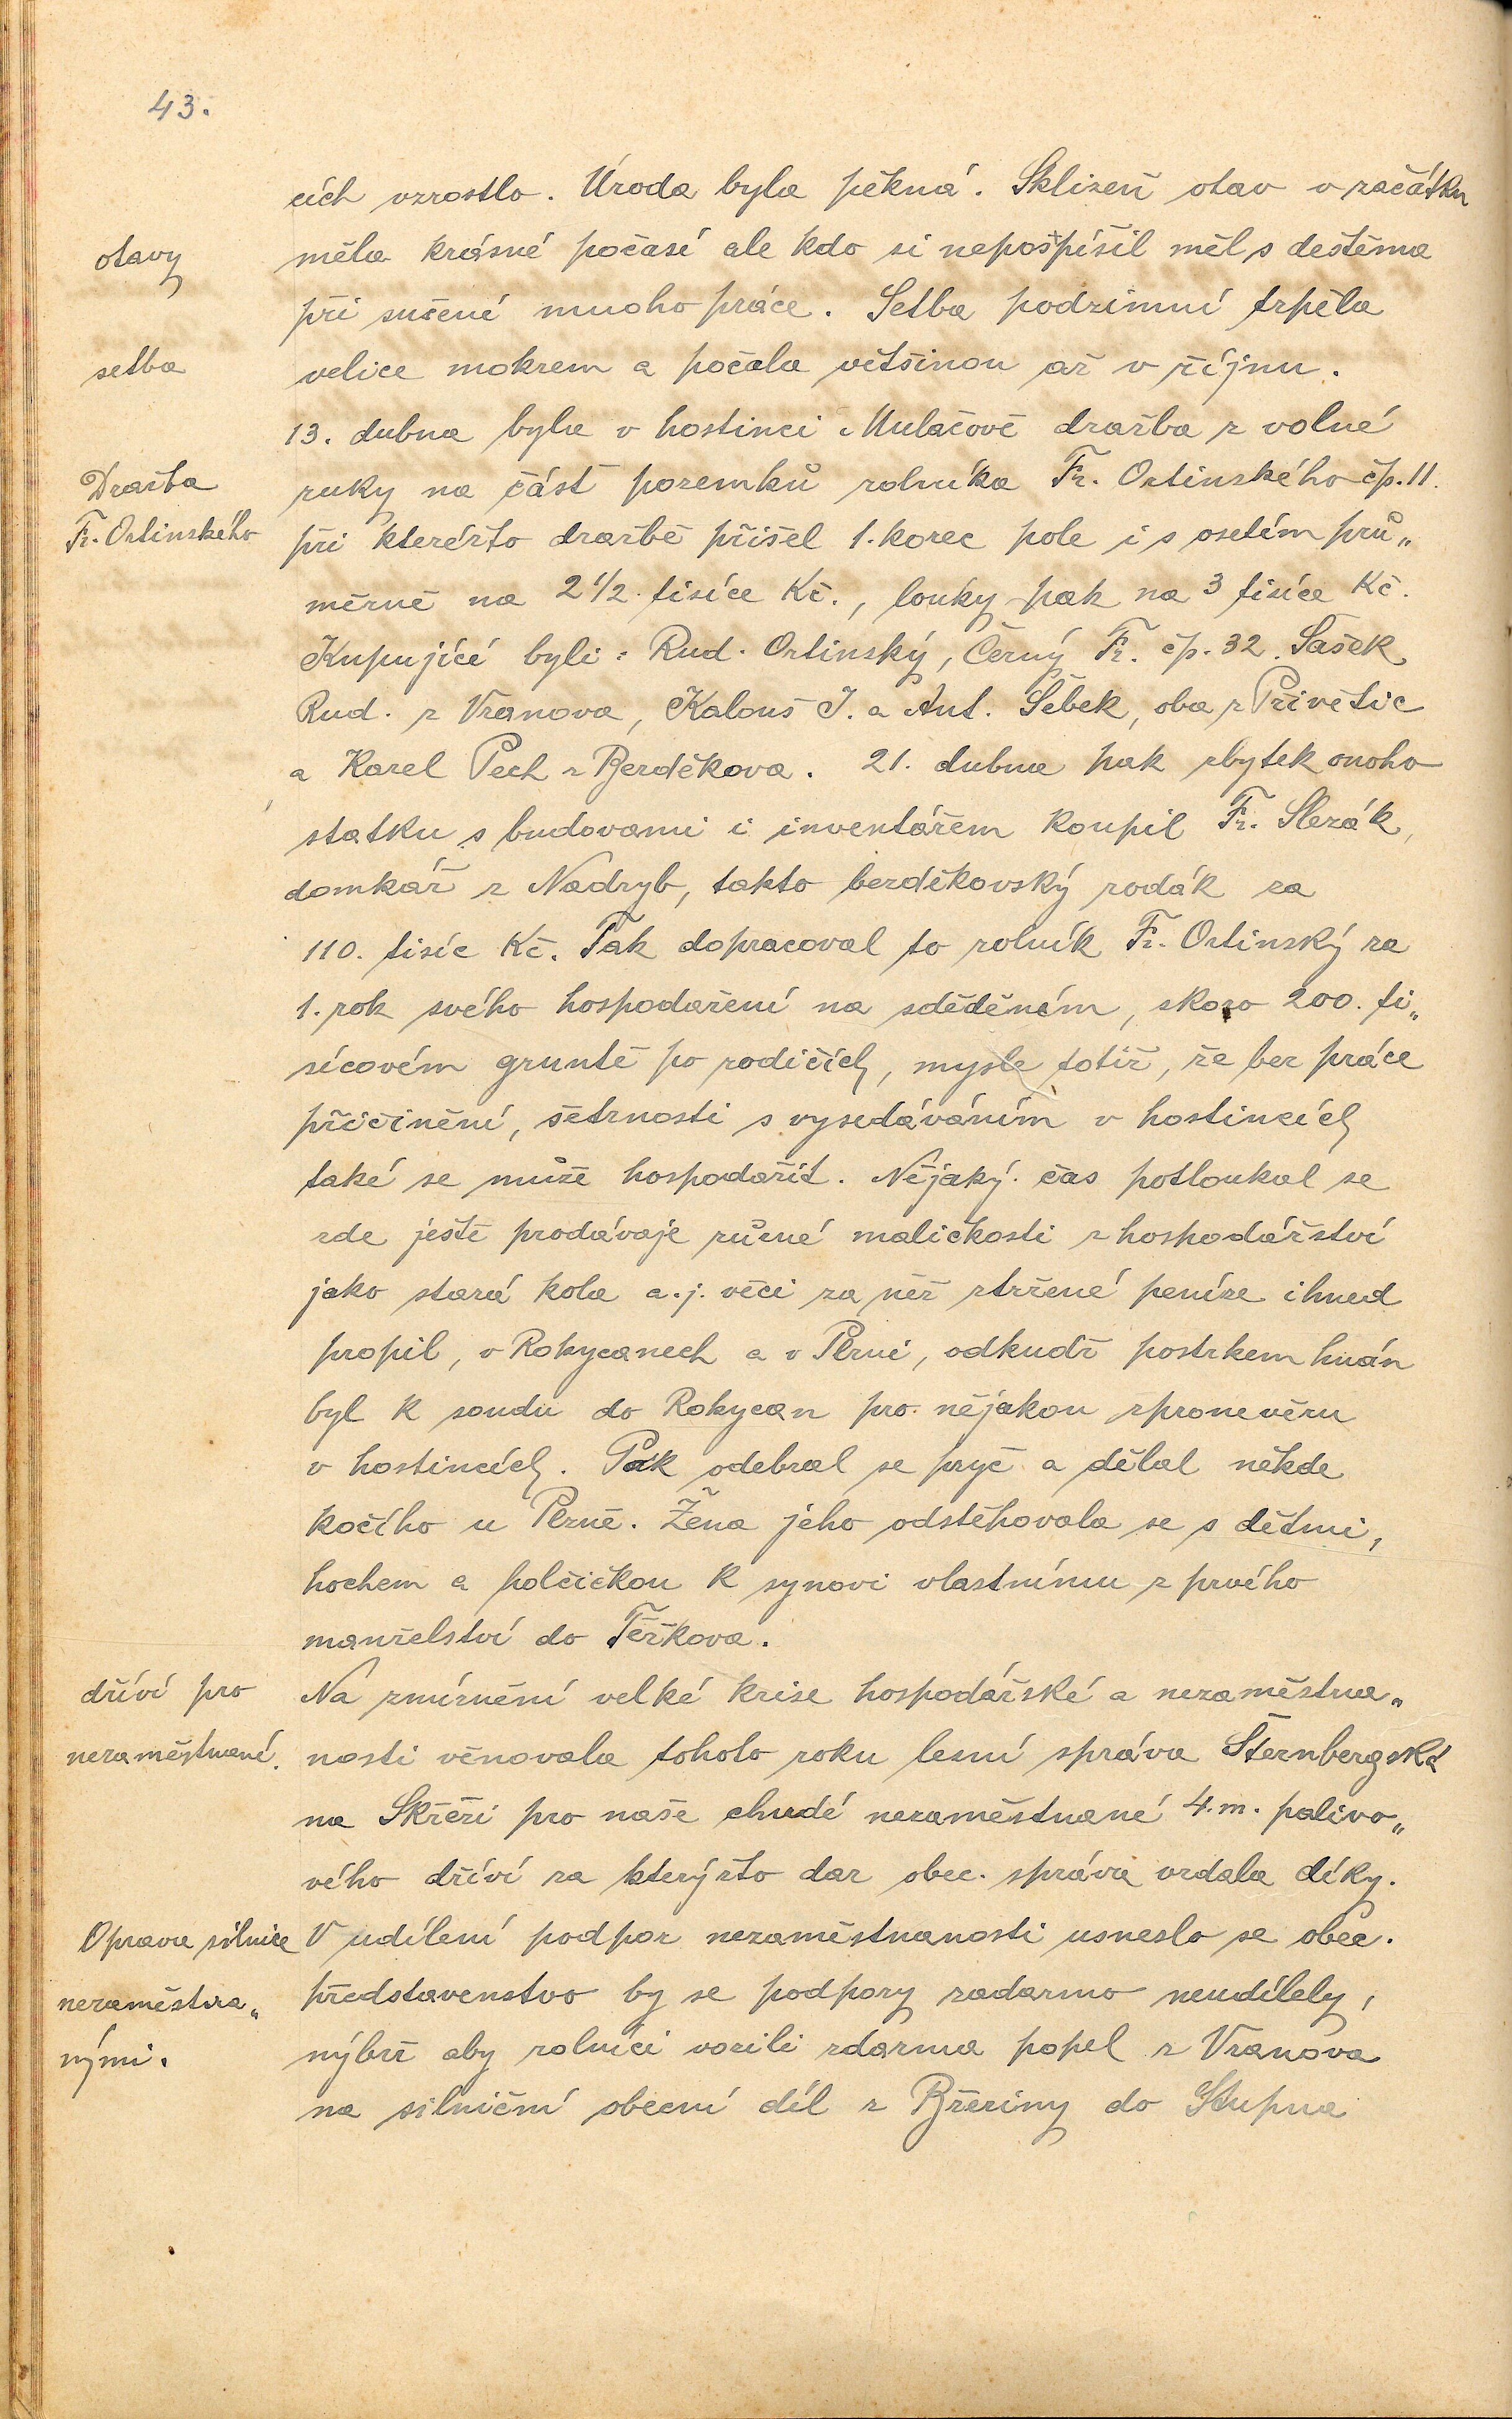 43.
cích vzrostlo. Úroda byla pěkná. Sklizeň otav v začátku
otavy
měla krásné počasí ale kdo si nepospíšil měl s deštěma
při sušení mnoho práce. Setba podzimní trpěla
setba
velice mokrem a počala většinou až v říjnu.
13. dubna byla v hostinci Mulačově dražba z volné
Dražba
ruky na část pozemků rolníka Fr. Ortinského čp. 11.
Fr. Ortinského
při kteréžto dražbě přišel 1. korec pole i s osetím prů„
měrně na 2 1/2 tisíce Kč., louky pak na 3 tisíce Kč.
Kupující byli: Rud. Ortinský, Černý Fr. čp. 32. Šašek
Rud. z Vranova, Kalous J. a Ant. Šebek, oba z Přívětic
a Karel Pech z Berděkova. 21. dubna pak zbytek onoho
statku s budovami i inventářem koupil Fr. Slezák,
domkář z Nadryb, takto berděkovský rodák za
110. tisíc Kč. Tak dopracoval to rolník Fr. Ortinský za
1. rok svého hospodaření na zděděném, skoro 200. ti„
sícovém gruntě po rodičích, mysle totiž, že bez práce
přičinění, šetrnosti s vysedáváním v hostincích
také se může hospodařit. Nějaký čas potloukal se
zde ještě prodávaje různé maličkosti z hospodářství
jako stará kola a. j. věci za něž ztržené peníze ihned
propil, v Rokycanech a v Plzni, odkudž postrkem hnán
byl k soudu do Rokycan pro nějakou zpronevěru
v hostincích. Pak odebral se pryč a dělal někde
kočího u Plzně. Žena jeho odstěhovala se s dětmi,
hochem a holčičkou k synovi vlastnímu z prvého
manželství do Těškova.
dříví pro
Na zmírnění velké krise hospodářské a nezaměstna„
nezaměstnané.
nosti věnovala tohoto roku lesní správa Šternbergská
na Skřéři pro naše chudé nezaměstnané 4. m. palivo„
vého dříví za kterýžto dar obec. správa vzdala díky.
Oprava silnice
V udílení podpor nezaměstnanosti usneslo se obec.
nezaměstna„
představenstvo by se podpory zadarmo neudílely,
nými.
nýbrž aby rolníci vozili zdarma popel z Vranova
na silniční obecní díl z Březiny do Stupna